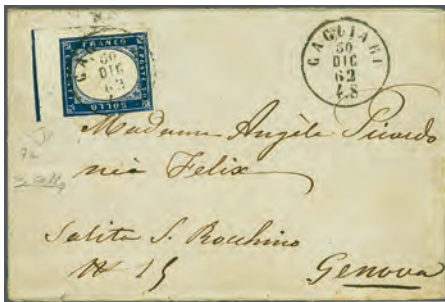 FRANCO
BOLLO
30
DIC
62
CAGLIARI
30
DIC
62
4S
Madame Angèle Picardo
née Felix
Salita S. Rocchino
N 15
Genova